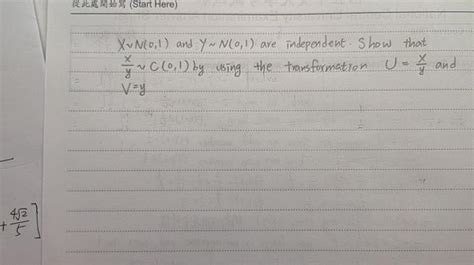 從此處開始寫 (Start Here)
X~N(0,1) and Y~N(0,1) are independent. Show that
x/y ~ C(0,1) by using the transformation U = x/y and
V=y
+ 4√2/5 ]